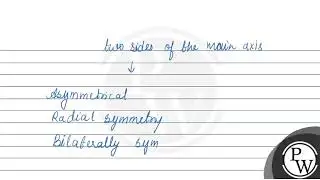 two sides of the main axis
↓
Asymmetrical
Radial symmetry
Bilaterally sym
PW